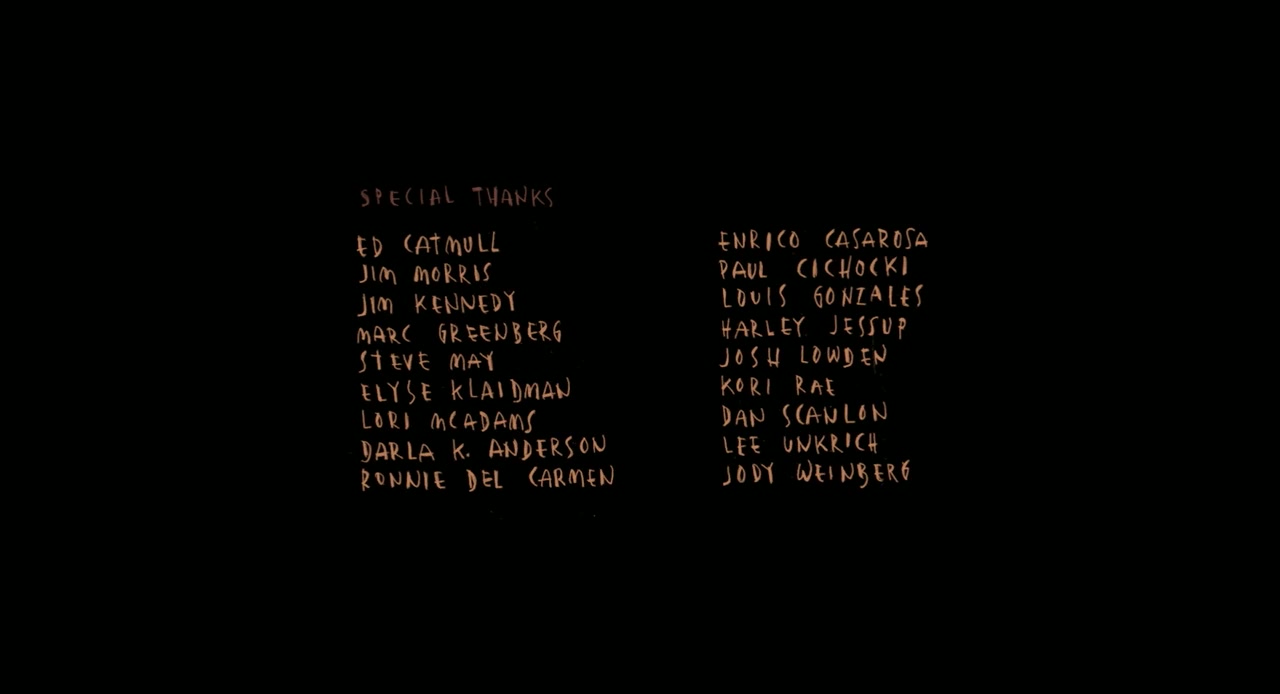 SPECIAL THANKS
ED CATMULL
JIM MORRIS
JIM KENNEDY
MARC GREENBERG
STEVE MAY
ELYSE KLAIDMAN
LORI MCADAMS
DARLA K. ANDERSON
RONNIE DEL CARMEN
ENRICO CASAROSA
PAUL CICHOCKI
LOUIS GONZALES
HARLEY JESSUP
JOSH LOWDEN
KORI RAE
DAN SCANLON
LEE UNKRICH
JODY WEINBERG